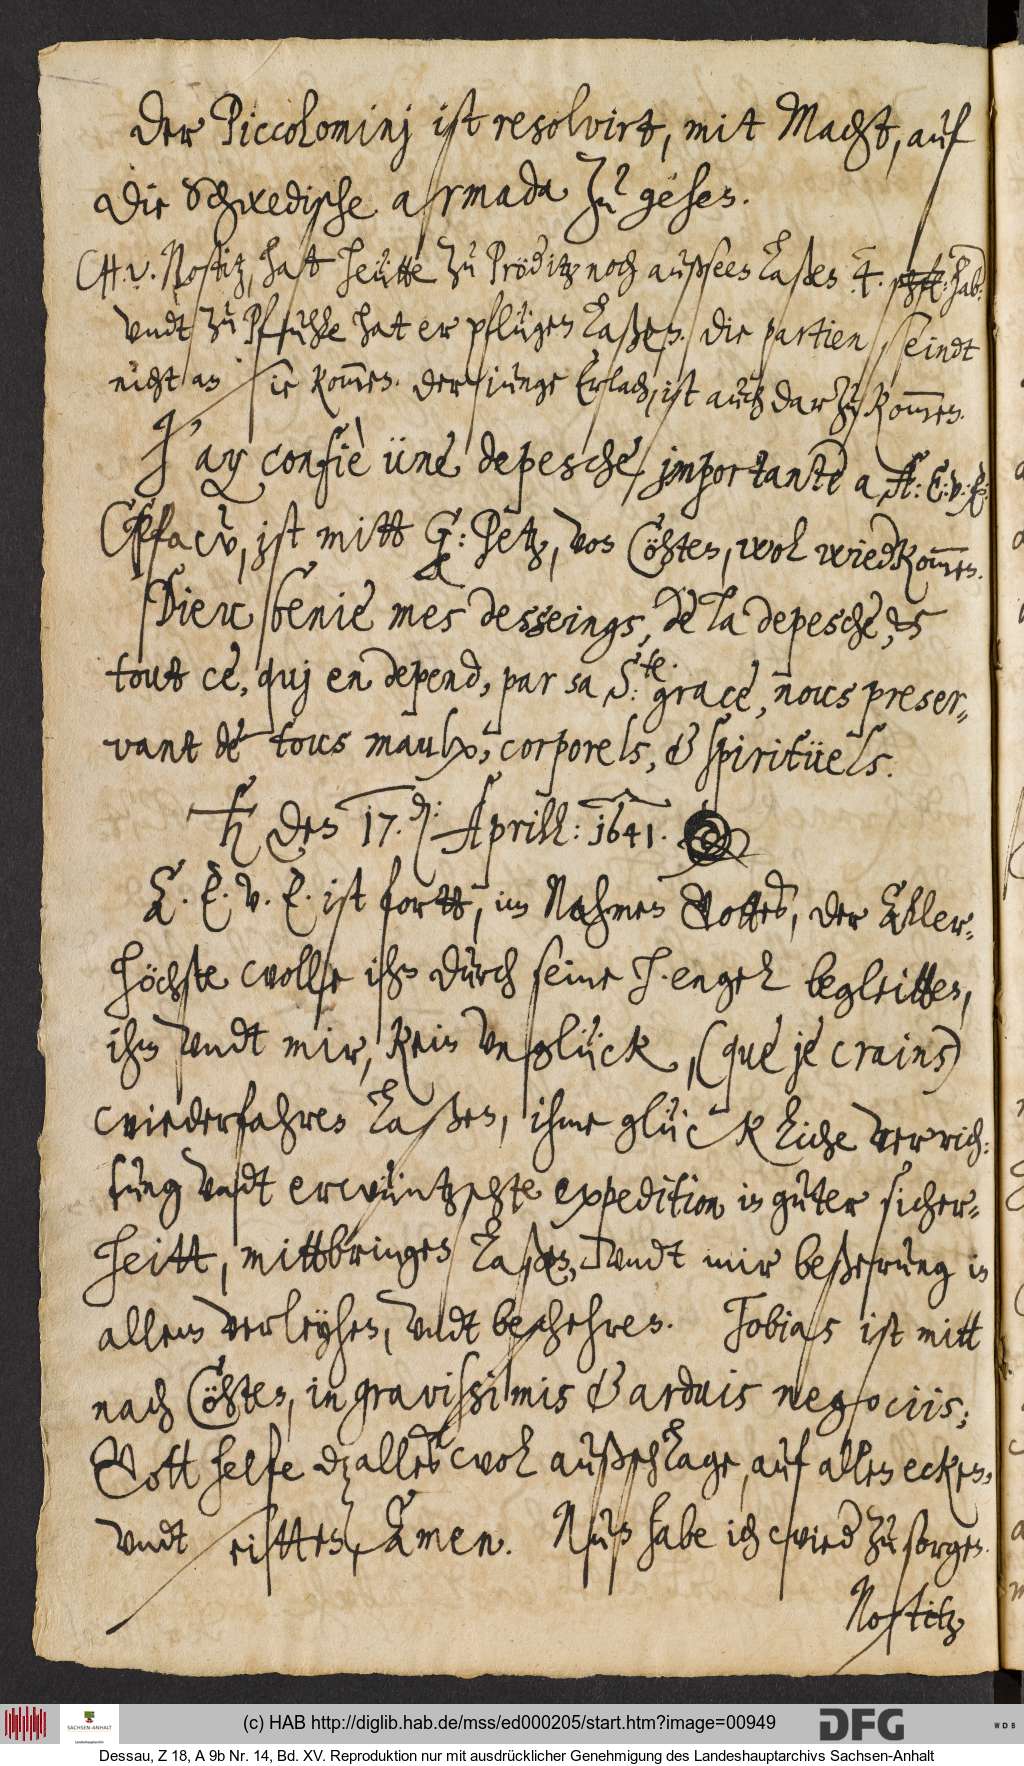 Der Piccolominj ist resolvirt, mit Macht, auf
die Schwedische armada zu gehen.
C. H. v. Nostitz, hat heütte zu Pröditz noch außseen laßen 4. hab:
vndt zu Pfuhle hat er pflügen laßen. die partien seindt
nicht an sie kommen. der iunge Erlach, ist auch darzu kommen.
J'ay confiè üne depesche importante a A: E: v: E:
Pfaw, ist mitt G: Petz, von Cöhten, wol wied kommen.
Dieu benie mes desseings, de la depesche, &
tout ce, quj en depend, par sa S:te. grace, nous preser-
vant de tous maulx, corporels, & spiritüels.
♄ den 17.d: Aprill: 1641.
A. E. v. E. ist fortt, im Nahmen Gottes, der Aller-
höchste wolle ihn durch seine h. engel begleitten,
ihm vndt mir, kein vnglück, (que je crains)
wiederfahren laßen, ihme glückliche verrich-
tung vndt erwüntzschte expedition in guter sicher-
heitt, mittbringen laßen, vndt mir beßerung in
allem verleyhen, vndt beschehren. Tobias ist mitt
nach Cöhten, in gravissimis & arduis negociis;
Gott helfe dz alles wol außschlage, auf allen ecken,
vndt eitten, Amen. Nun habe ich wied zu sorgen.
Nostitz
(c) HAB http://diglib.hab.de/mss/ed000205/start.htm?image=00949
SACHSEN-ANHALT
Landeshauptarchiv
DFG
WDB
Dessau, Z 18, A 9b Nr. 14, Bd. XV. Reproduktion nur mit ausdrücklicher Genehmigung des Landeshauptarchivs Sachsen-Anhalt